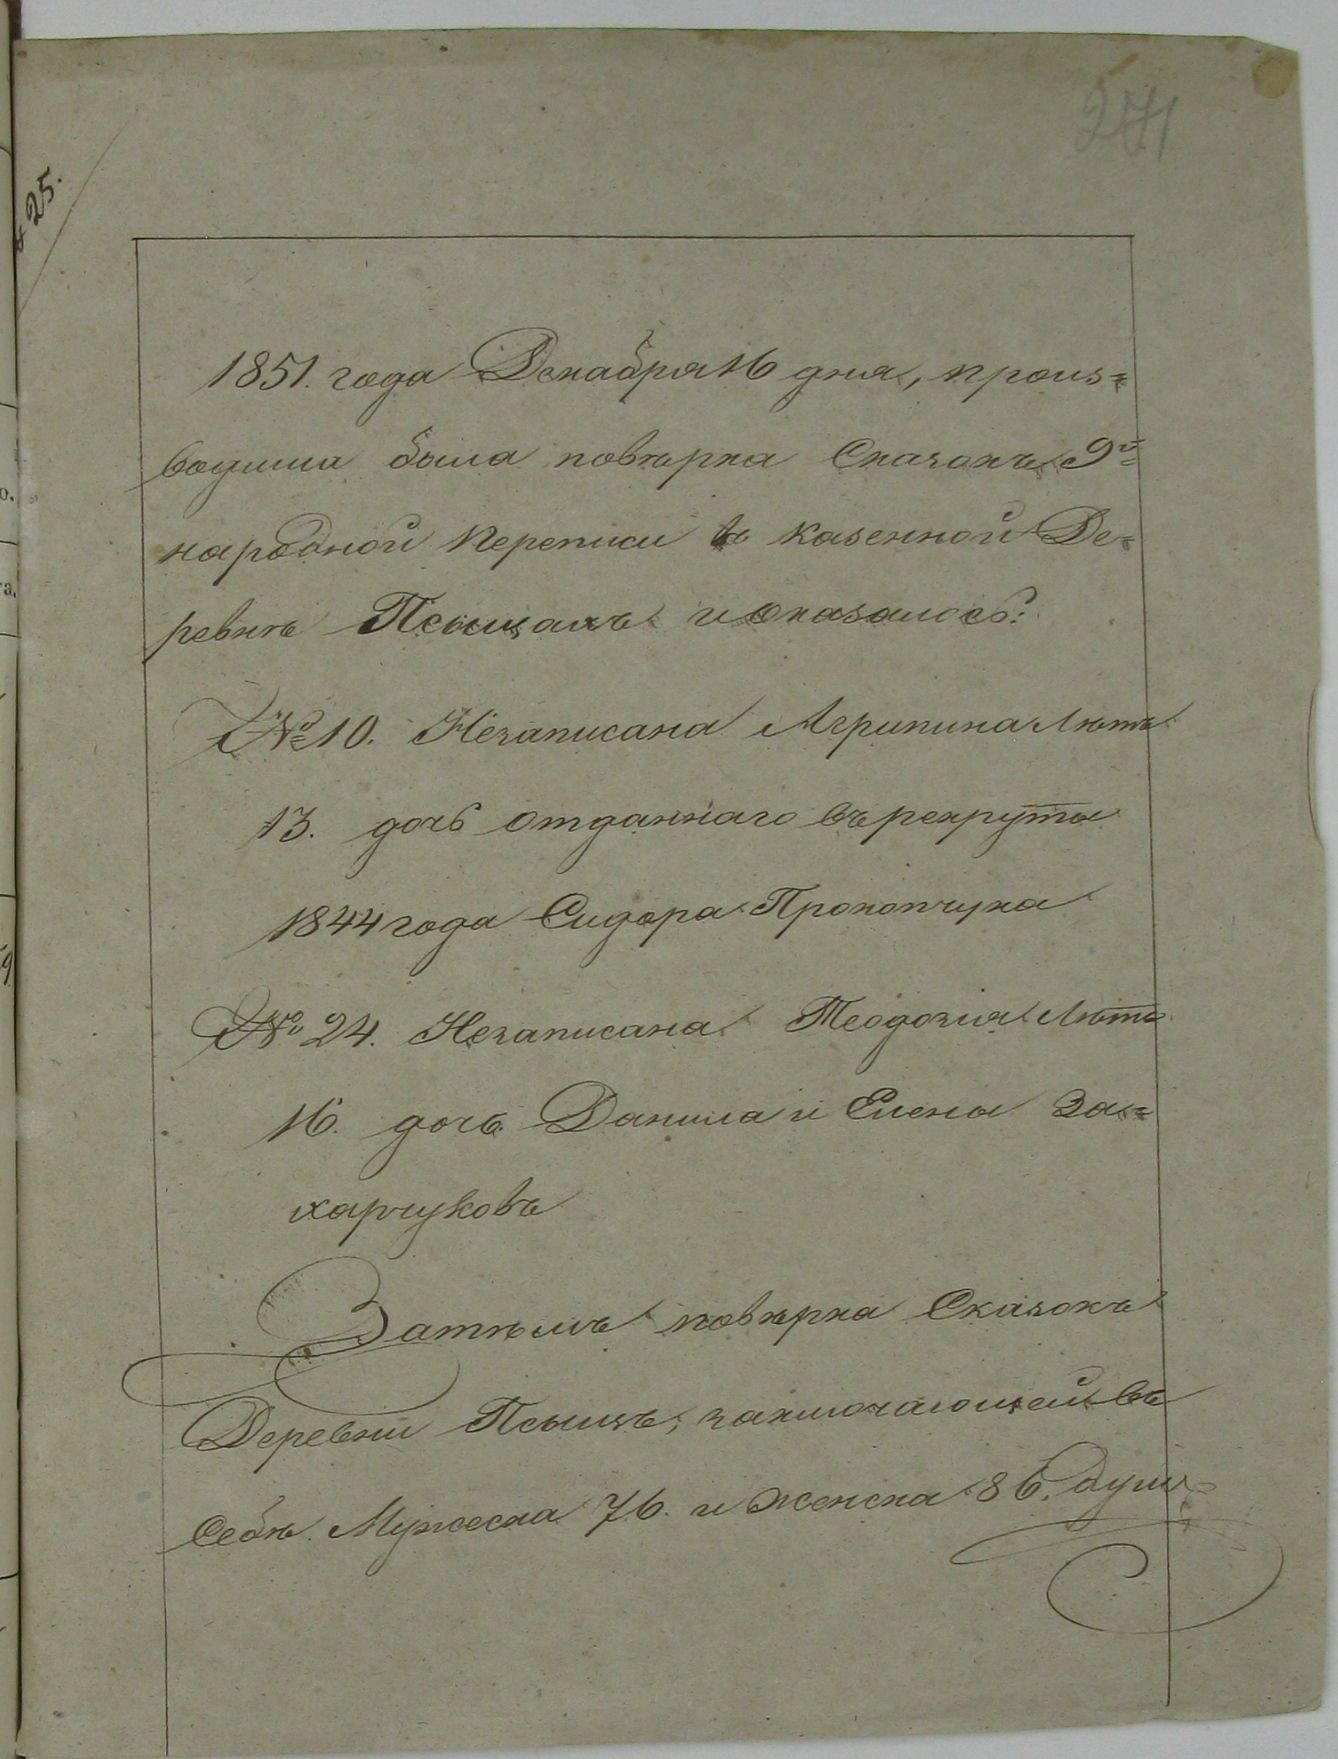 271
25.
1851. года Декабря 16 дня, произ=
водима была повѣрка Сказокъ 9й
народной переписи въ казенной Де=
ревнѣ Псыщахъ и оказалось:
№ 10. Незаписана Агрипина Лѣтъ
13. дочь отданнаго въ рекруты
1844 года Сидора Прокопчука
№ 24. Незаписана Теодозия Лѣтъ
16. дочь Данила и Елены За=
харчуковъ
Затѣмъ повѣрка Сказокъ
Деревни Псыщъ, заключающей въ
Себѣ Мужеска 76. и Женска 86. душъ